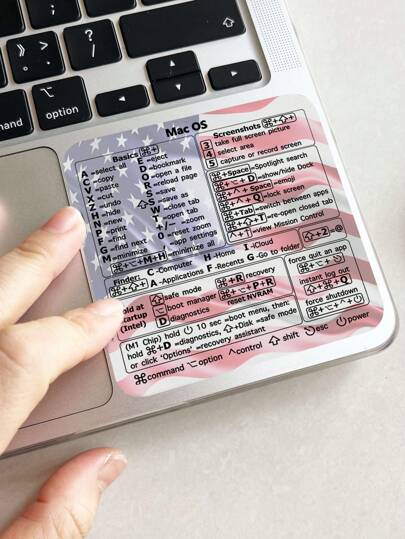 ? /
option
mmand
Mac OS
Basics ⌘+
A =select all
C =copy
V =paste
X =cut
Z =undo
H =hide
N =new
P =print
F =find
G =find next
M =minimize
E =eject
D =bookmark
O =open a file
R =reload page
S =save
⇧S =save as
W =close tab
T =open tab
+/- =zoom
0 =reset zoom
, =app settings
⌘+⌥+M+H =minimize all
Screenshots ⌘+⇧+
3 take full screen picture
4 select area
5 capture or record screen
⌘+Space =Spotlight search
⌘+⌥+D =show/hide Dock
⌘+^+Space =emoji
⌘+^+Q =lock screen
⌘+Tab =switch between apps
⌘+⇧+T =re-open closed tab
^+↑ =view Mission Control
Finder: C -Computer H -Home I -iCloud ⇧+2=@
⌘+⇧+ A -Applications F -Recents G -Go to folder
hold at
startup
(Intel)
⇧ safe mode
⌥ boot manager
D diagnostics
⌘+R recovery
⌘+⌥+P+R
reset NVRAM
force quit an app
instant log out
⌘+⌥+⇧+Q
force shutdown
(M1 Chip) hold ⏻ 10 sec =boot menu, then:
hold ⌘+D =diagnostics, ⇧+Disk =safe mode
or click 'Options' =recovery assistant
⌘command ⌥option ^control ⇧ shift ⎋esc ⏻power